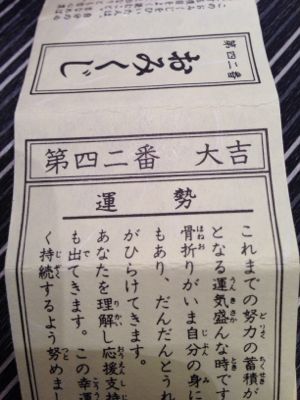 第四二番
おみくじ
第四二番 大吉
運勢
これまでの努力の蓄積が
となる運気盛んな時です
骨折りがいま自分の身に
もあり、だんだんとうれ
がひらけてきます。
あなたを理解し応援支持
も出てきます。この幸運
く持続するよう努めまし